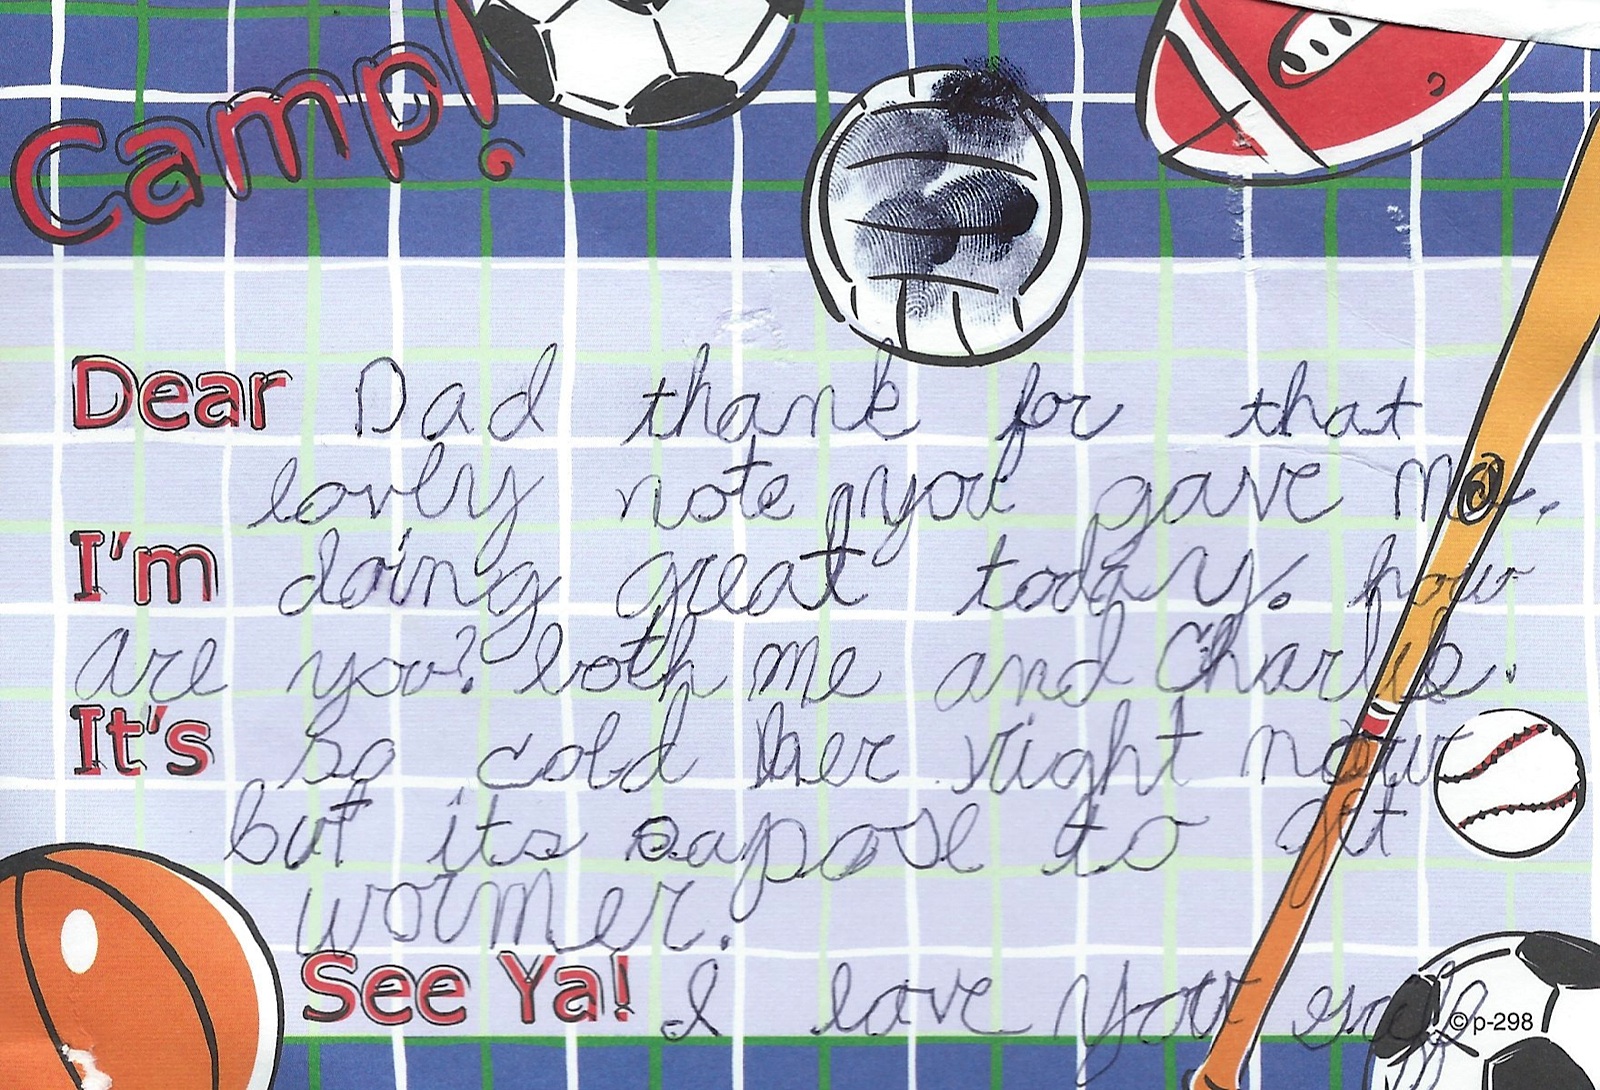 Camp!
Dear Dad thank for that
lovely note you gave me.
I'm doing great today. how
are you? both me and Charlie.
It's so cold her right now
but its sapose to get
wormer.
See Ya! I love you
©p-298